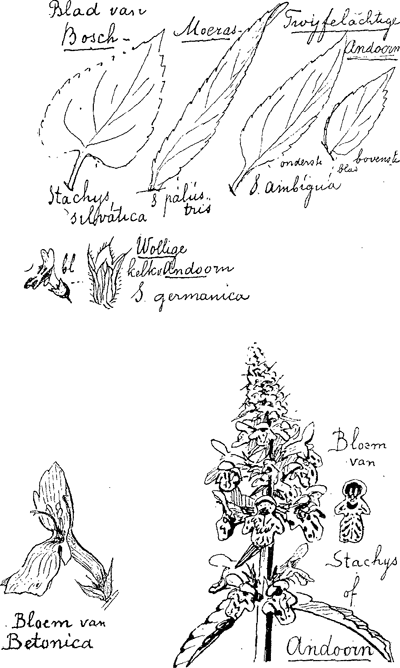 Blad van
Bosch-
Moeras-
Twijfelachtige
Andoorn
Stachys
silvática
S pálus
tris
onderste
bovenste
blad
S. ambígua
bl
Wollige
kelk Andoorn
S. germanica
Bloem van
Betonica
Bloem
van
Stachys
of
Andoorn